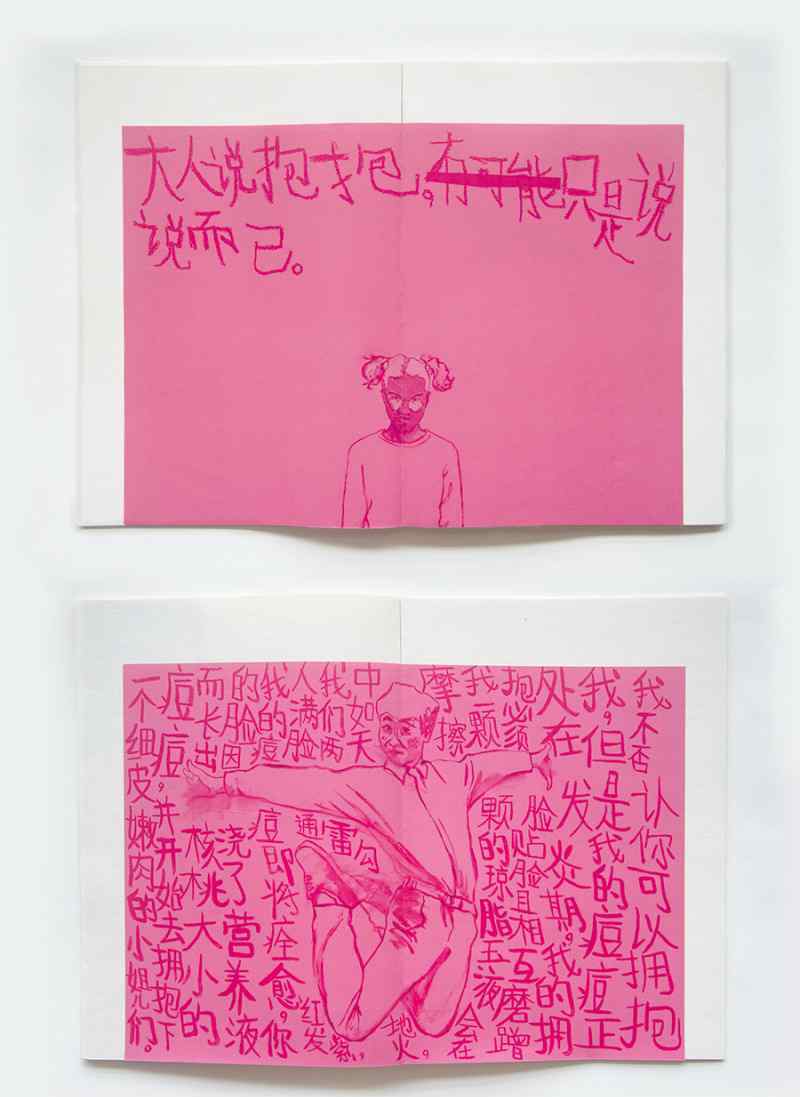 大人说抱抱，有可能只是说
说而已。
我不否认你可以拥抱
我，但是我的痘痘正
处在发炎期，我的拥
抱必须脸贴脸且相互磨蹭
我颗颗的琼脂玉液会在
摩擦
中如天雷勾地火，
我们两
人满脸通红发紫，
我的痘痘即将痊愈，你
的脸因浇了营养液
而长出核桃大小的
痘痘，并开始去拥抱下
一个细皮嫩肉的小姐儿们。